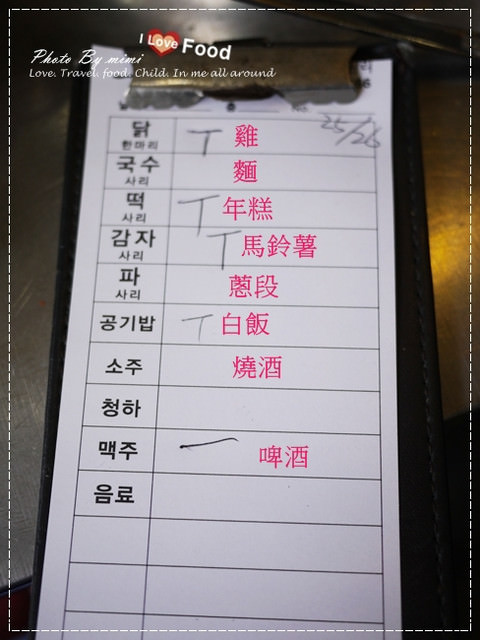 I Love Food
Photo By mimi
Love. Travel. food. Child. In me all around
25/26
닭 한마리 T 雞
국수 사리 麵
떡 사리 T 年糕
감자 사리 T 馬鈴薯
파 사리 蔥段
공기밥 T 白飯
소주 燒酒
청하
맥주 一 啤酒
음료